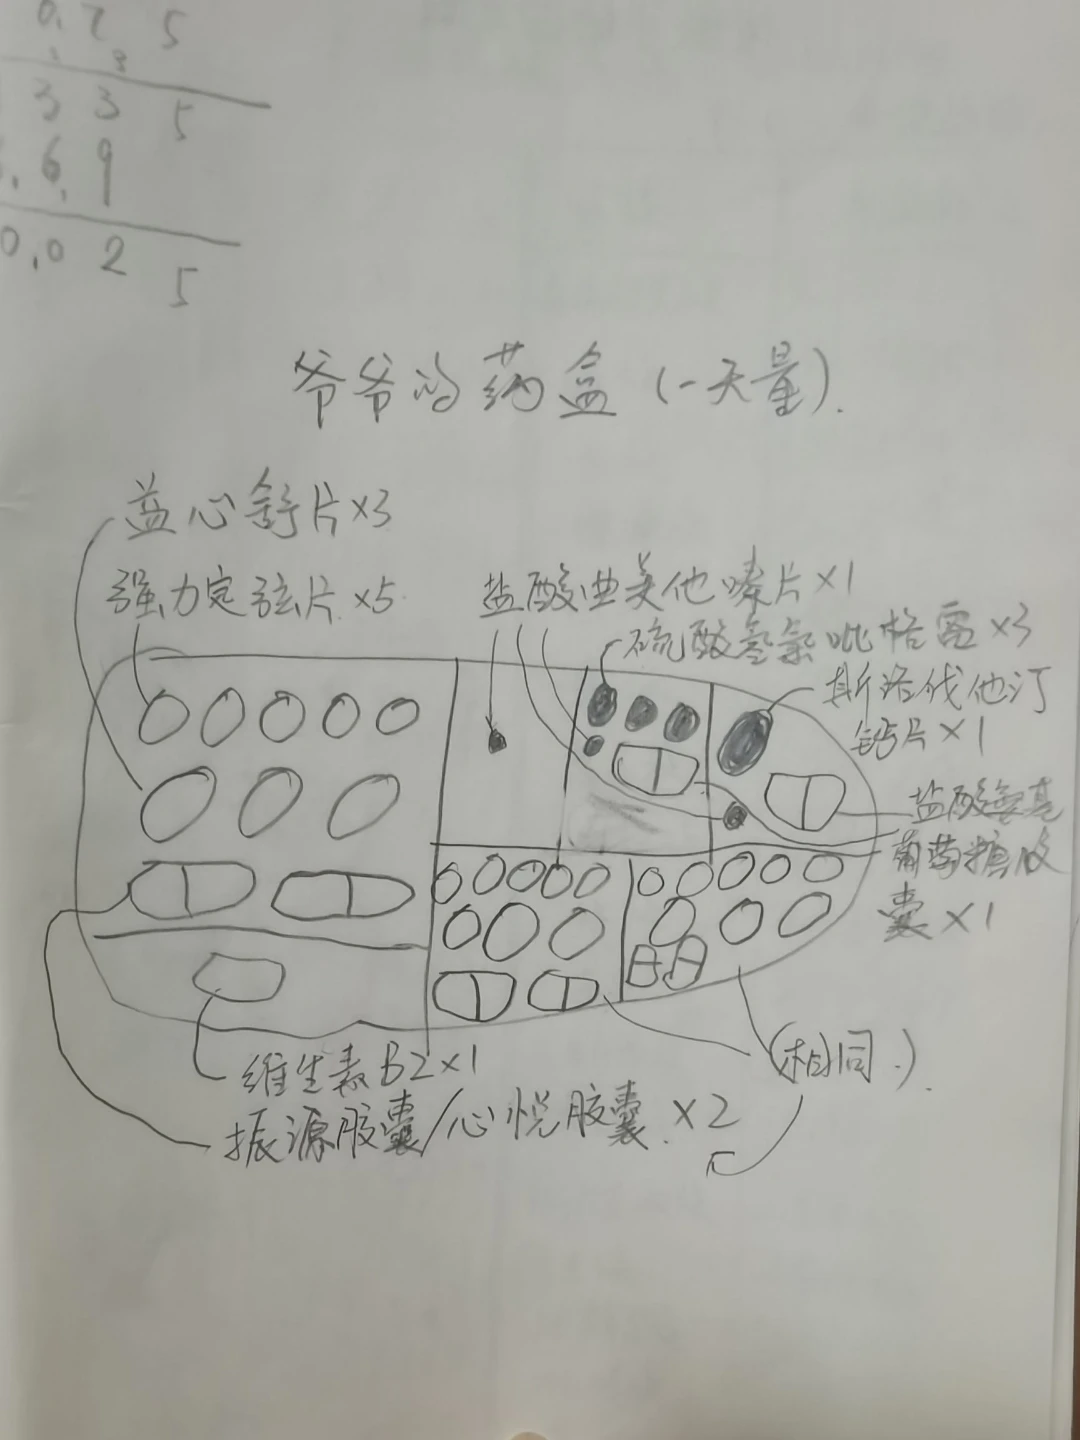 0.7 5
3 3 5
6.9
0.02 5
爷爷的药盒(一天量).
益心舒片×3
强力定眩片×5
盐酸曲美他嗪片×1
硫酸氢氯吡格雷×3
斯洛伐他汀
钙片×1
盐酸氨基
葡萄糖胶
囊×1
(相同.).
维生素B2×1
振源胶囊/心悦胶囊.×2